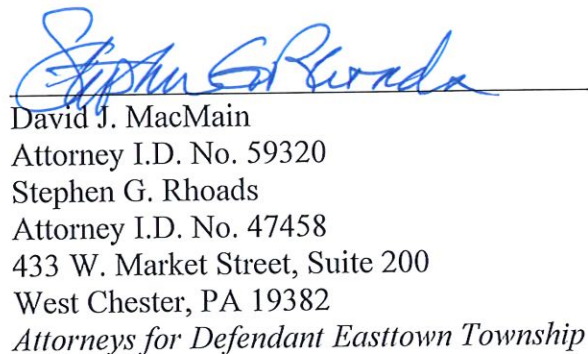 Stephen G. Rhoads
David J. MacMain
Attorney I.D. No. 59320
Stephen G. Rhoads
Attorney I.D. No. 47458
433 W. Market Street, Suite 200
West Chester, PA 19382
Attorneys for Defendant Easttown Township